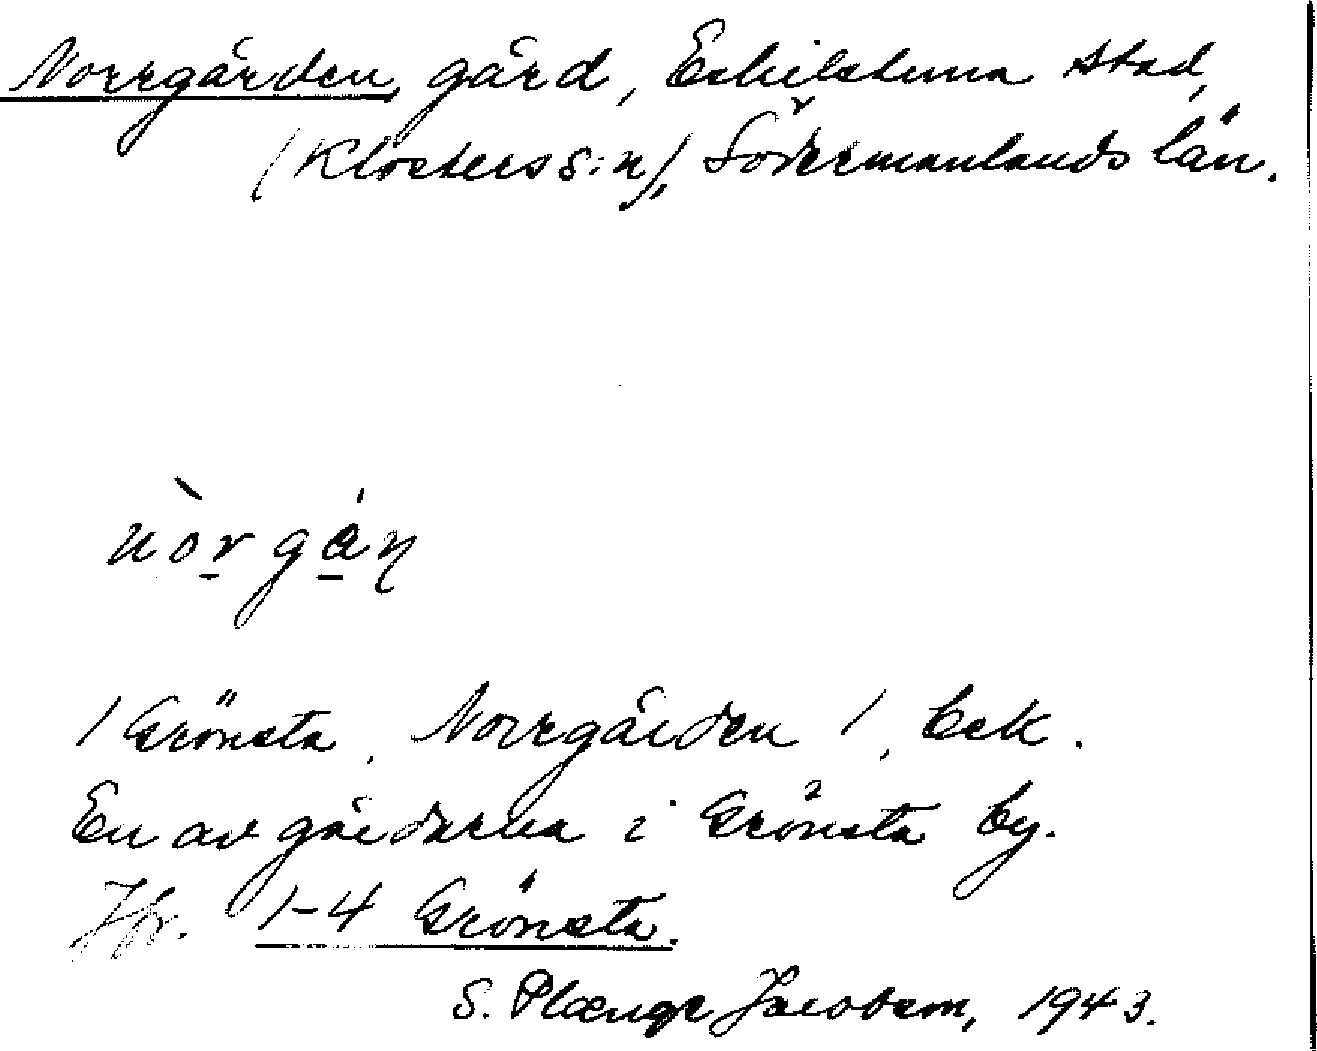 Norrgården, gård, Eskilstuna stad,
(Klosters s:n), Södermanlands län.
nòrgán
1 Grönsta, Norrgården 1, bek.
En av gårdarna i Grönsta by.
Jfr. 1-4 Grönsta.
S. Plænge Jacobson, 1943.